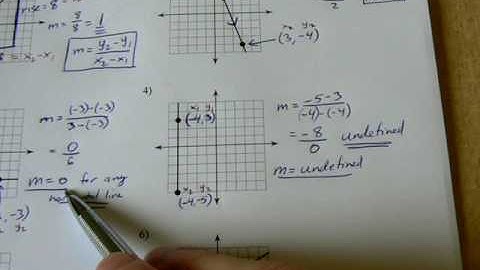 rise = 8
m = 8/8 = 1
= x₂ - x₁
m = y₂-y₁/x₂-x₁
x₂ y₂
(3, -4)
2
4)
m = (-3)-(-3)/3-(-3)
= 0/6
m = 0 for any
line
-3)
x₂ y₂
x₁ y₁
(-4, 3)
x₂ y₂
(-4, -5)
m = -5-3/(-4)-(-4)
= -8/0 undefined
m = undefined
6)